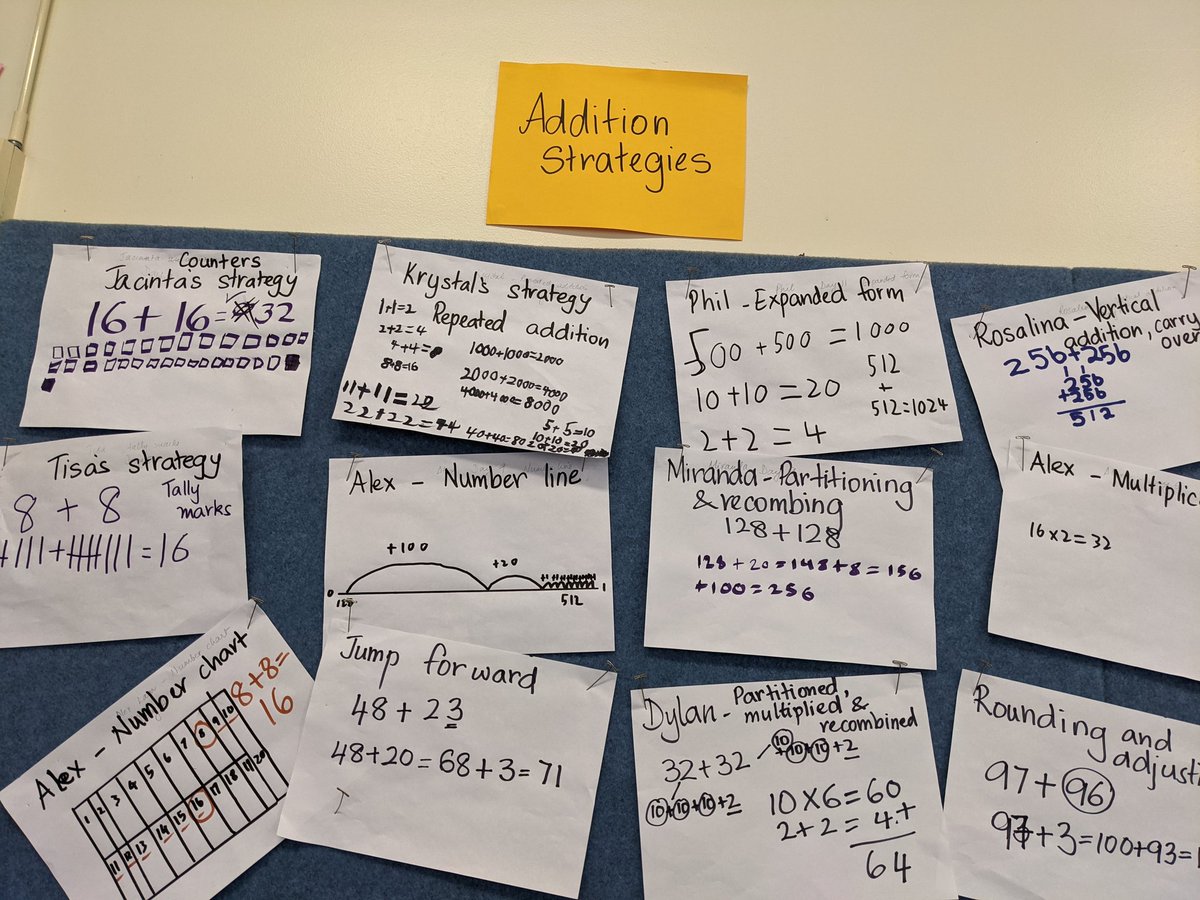 Addition
Strategies
Counters
Jacinta's strategy
16 + 16 = 32
Krystal's strategy
Repeated addition
1+1=2
2+2=4
4+4=
8+8=16
1000+1000=2000
2000+2000=4000
4000+4000=8000
11+11=22
22+22=44
40+40=80
5+5=10
10+10=20
Phil - Expanded form
500 + 500 = 1000
10 + 10 = 20
2 + 2 = 4
512
+
512=1024
Rosalina - Vertical
addition, carry
over
256+256
1 1
256
+256
512
Tisa's strategy
8 + 8
Tally
marks
= 16
Alex - Number line
+100
+20
0
128
512
1
Miranda - Partitioning
& recombing
128 + 128
128 + 20 = 148 + 8 = 156
+100 = 256
Alex - Multiplic
16 x 2 = 32
Alex - Number chart
8+8=
16
1 2 3 4 5 6 7 8 9 10
11 12 13 14 15 16 17 18 19 20
Jump forward
48 + 23
48+20=68+3=71
Dylan - Partitioned,
multiplied &
recombined
32 + 32
10+10+10+2
10+10+10+2
10 x 6 = 60
2+2 = 4 +
64
Rounding and
adjusti
97 + 96
97 + 3 = 100 + 93 =